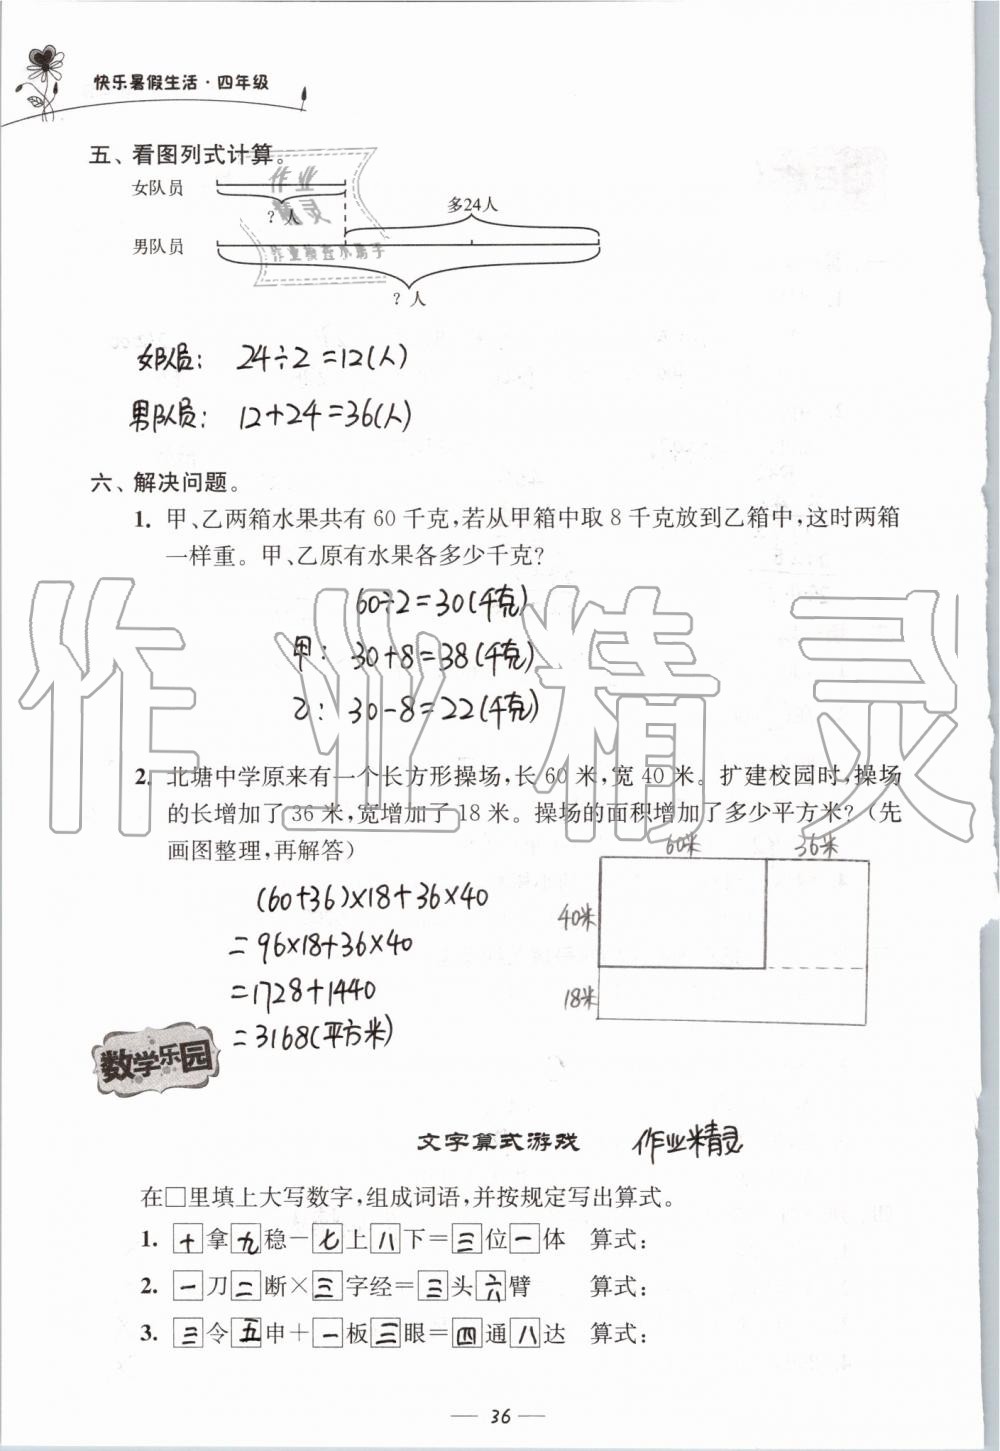 快乐暑假生活·四年级
五、看图列式计算。
女队员
作业
精灵
？人
多24人
男队员
？人
女队员: 24÷2=12(人)
男队员: 12+24=36(人)
六、解决问题。
1. 甲、乙两箱水果共有60千克,若从甲箱中取8千克放到乙箱中,这时两箱
一样重。甲、乙原有水果各多少千克?
60÷2=30(千克)
甲: 30+8=38(千克)
乙: 30-8=22(千克)
作业精灵
2. 北塘中学原来有一个长方形操场,长60米,宽40米。扩建校园时,操场
的长增加了36米,宽增加了18米。操场的面积增加了多少平方米?(先
画图整理,再解答)
60米 36米
(60+36)×18+36×40
40米
=96×18+36×40
=1728+1440
18米
=3168(平方米)
数学乐园
文字算式游戏 作业精灵
在□里填上大写数字,组成词语,并按规定写出算式。
1. 十拿九稳-七上八下=三位一体 算式:
2. 一刀二断×三字经=三头六臂 算式:
3. 三令五申+一板三眼=四通八达 算式:
36